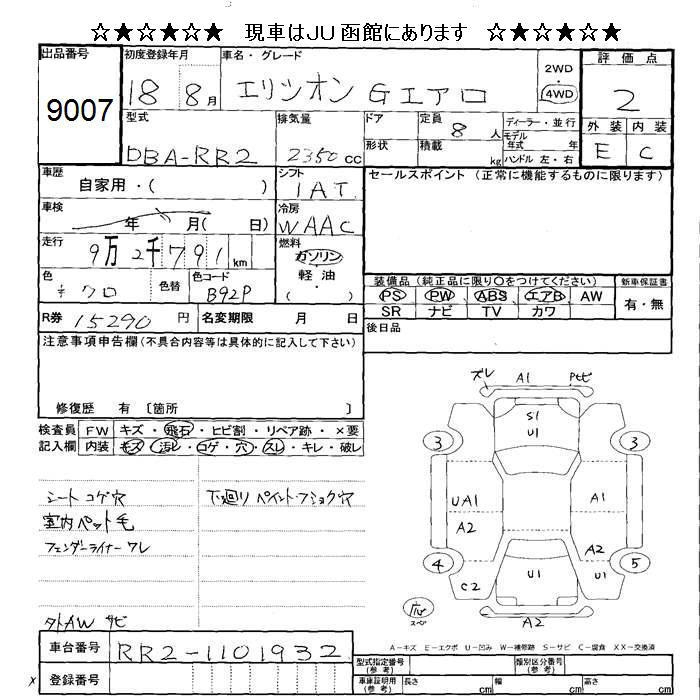 ☆★☆★☆★ 現車はJU函館にあります ☆★☆★☆★
出品番号 初度登録年月 車名・グレード 2WD 評価点
9007 18 8月 エリシオン Gエアロ 4WD 2
型式 排気量 ドア 定員 8人 ディーラー・並行 外装 内装
DBA-RR2 2350cc 形状 積載 kg モデル年式 年 ハンドル 左・右 E C
車歴 自家用・( ) シフト IAT セールスポイント (正常に機能するものに限ります)
車検 年 月( 日) 冷房 WAAC
走行 9万2千791km 燃料 ガソリン 軽油 ( )
色 色替 色コード B92P
装備品 (純正品に限り○をつけてください) 新車保証書
PS PW ABS エアB AW 有・無
SR ナビ TV カワ
R券 15290円 名変期限 月 日 後日品
注意事項申告欄(不具合内容等は具体的に記入して下さい)
修復歴 有 〔箇所 〕
検査員 FW キズ・飛石・ヒビ割・リペア跡・×要
記入欄 内装 キズ・汚レ・コゲ・穴・スレ・キレ・破レ
シート コゲ穴 下廻り ペイント・フショク穴
室内ペット毛
フェンダーライナー ワレ
タトAW サビ
ズレ A1
S1
U1
3 3
UA1 A1
A2 A2
4 5
C2 U1 U1
A2
A-キズ E-エクボ U-凹み W-補修跡 S-サビ C-腐食 XX-交換済
車台番号 RR2-1101932
型式指定番号(参考) 類別区分番号(参考)
x 登録番号
車庫証明用(参考) 長さ cm 幅 cm 高さ cm